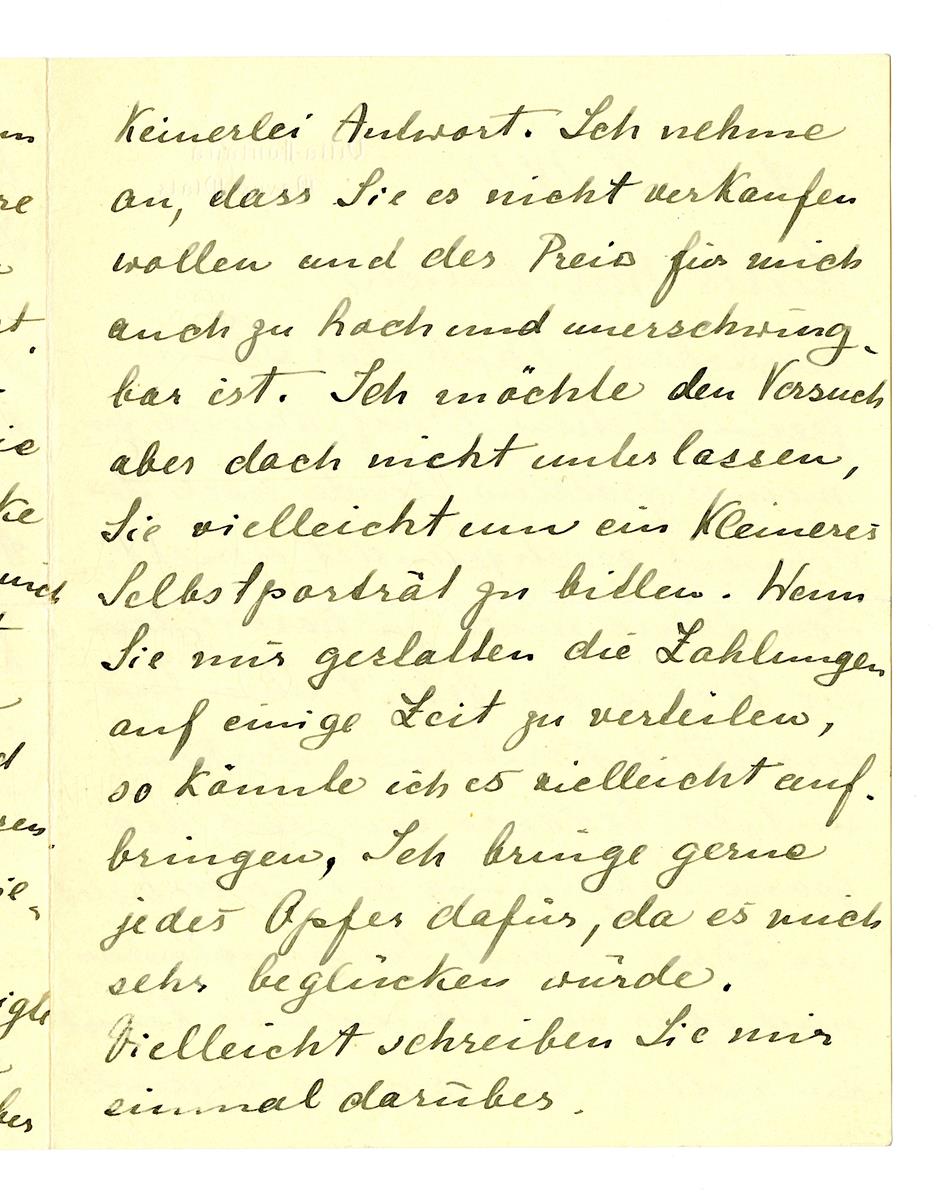 keinerlei Antwort. Ich nehme
an, dass Sie es nicht verkaufen
wollen und der Preis für mich
auch zu hoch und unerschwing-
bar ist. Ich möchte den Versuch
aber doch nicht unterlassen,
Sie vielleicht um ein kleineres
Selbstporträt zu bitten. Wenn
Sie mir gestatten die Zahlungen
auf einige Zeit zu verteilen,
so könnte ich es vielleicht auf-
bringen, Ich bringe gerne
jedes Opfer dafür, da es mich
sehr beglücken würde.
Vielleicht schreiben Sie mir
einmal darüber.